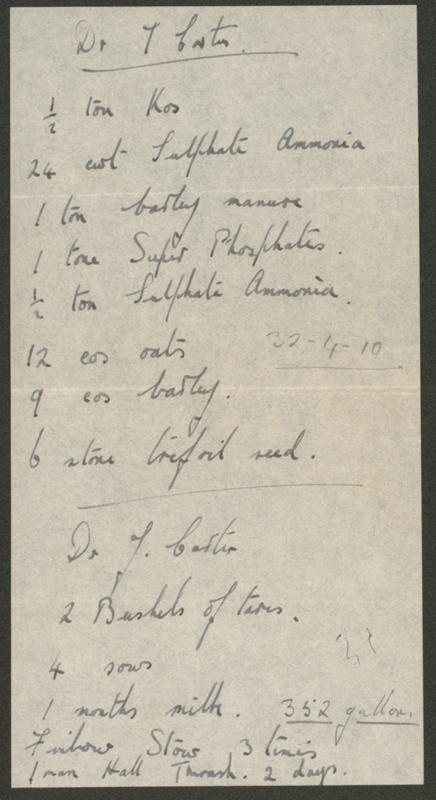 Dr J Carter.
½ ton Kos
24 cwt Sulphate Ammonia
1 ton barley manure
1 tone Super Phosphates.
½ ton Sulphate Ammonia.
12 cos oats 32-4-10
9 cos barley.
6 stone trefoil seed.
Dr J. Carter
2 Bushels of tares.
4 sows
1 months milk. 352 gallon.
Stow 3 times
1 man Hall Thrash. 2 days.